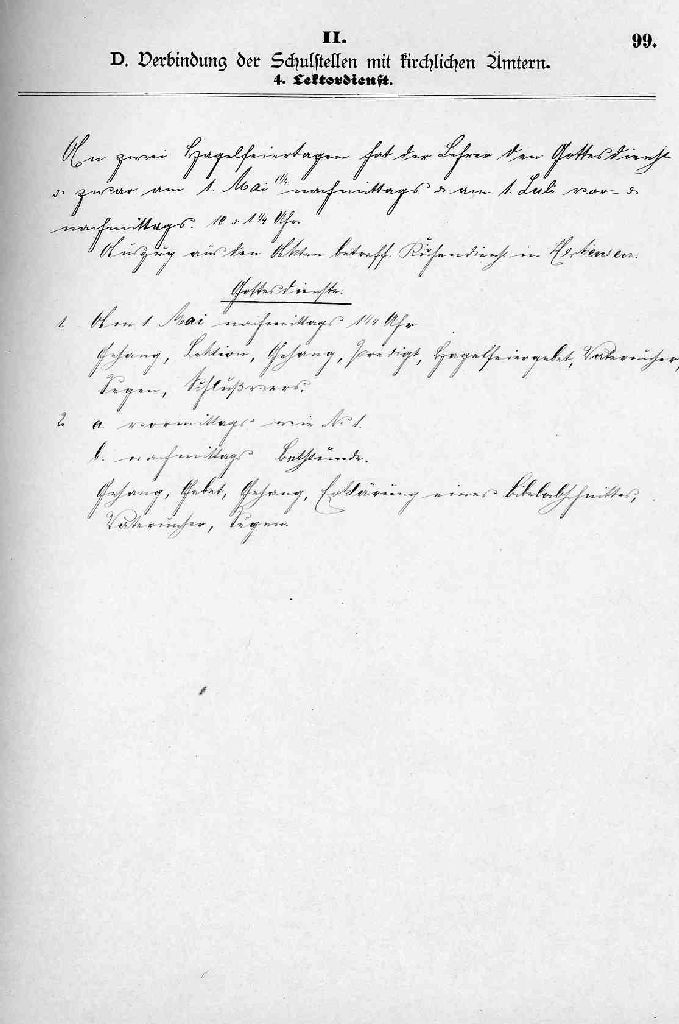 II.
99.
D. Verbindung der Schulstellen mit kirchlichen Ämtern.
4. Lektordienst.
An zwei Hagelfeiertagen hat der Lehrer den Gottesdienst
u. zwar am 1. Mai nachmittags u. am 1. Juli vor- u.
nachmittags. 10 u. 1¼ Uhr.
Auszug aus den Akten betreff. Küsterdienst in
Gottesdienste.
1. Am 1 Mai nachmittags Uhr
Gesang, Lektion, Gesang, Predigt, Hagelfeiergebet, Vaterunser,
Segen, Schlußvers.
2. a. vormittags wie No 1.
b. nachmittags Betstunde.
Gesang, Gebet, Gesang, Erklärung eines Bibelabschnittes,
Vaterunser, Segen.